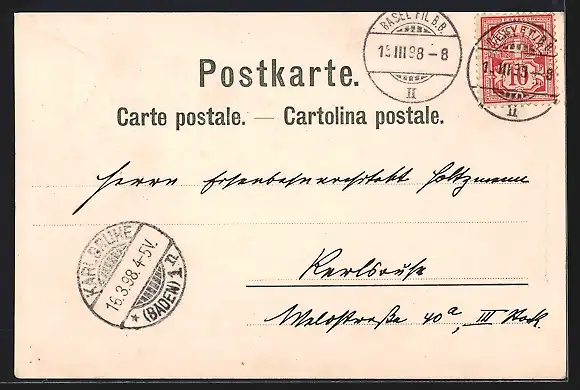 BASEL FIL. B.B.
15 III 98 – 8
II
10
III 98 – 8
II
Postkarte.
Carte postale. — Cartolina postale.
Herrn Eisenbahnarchitekt Holtzmann
Karlsruhe
Waldstraße 40a, III Stock.
KARLSRUHE
16.3.98.4-5V.
* (BADEN) 1 n.